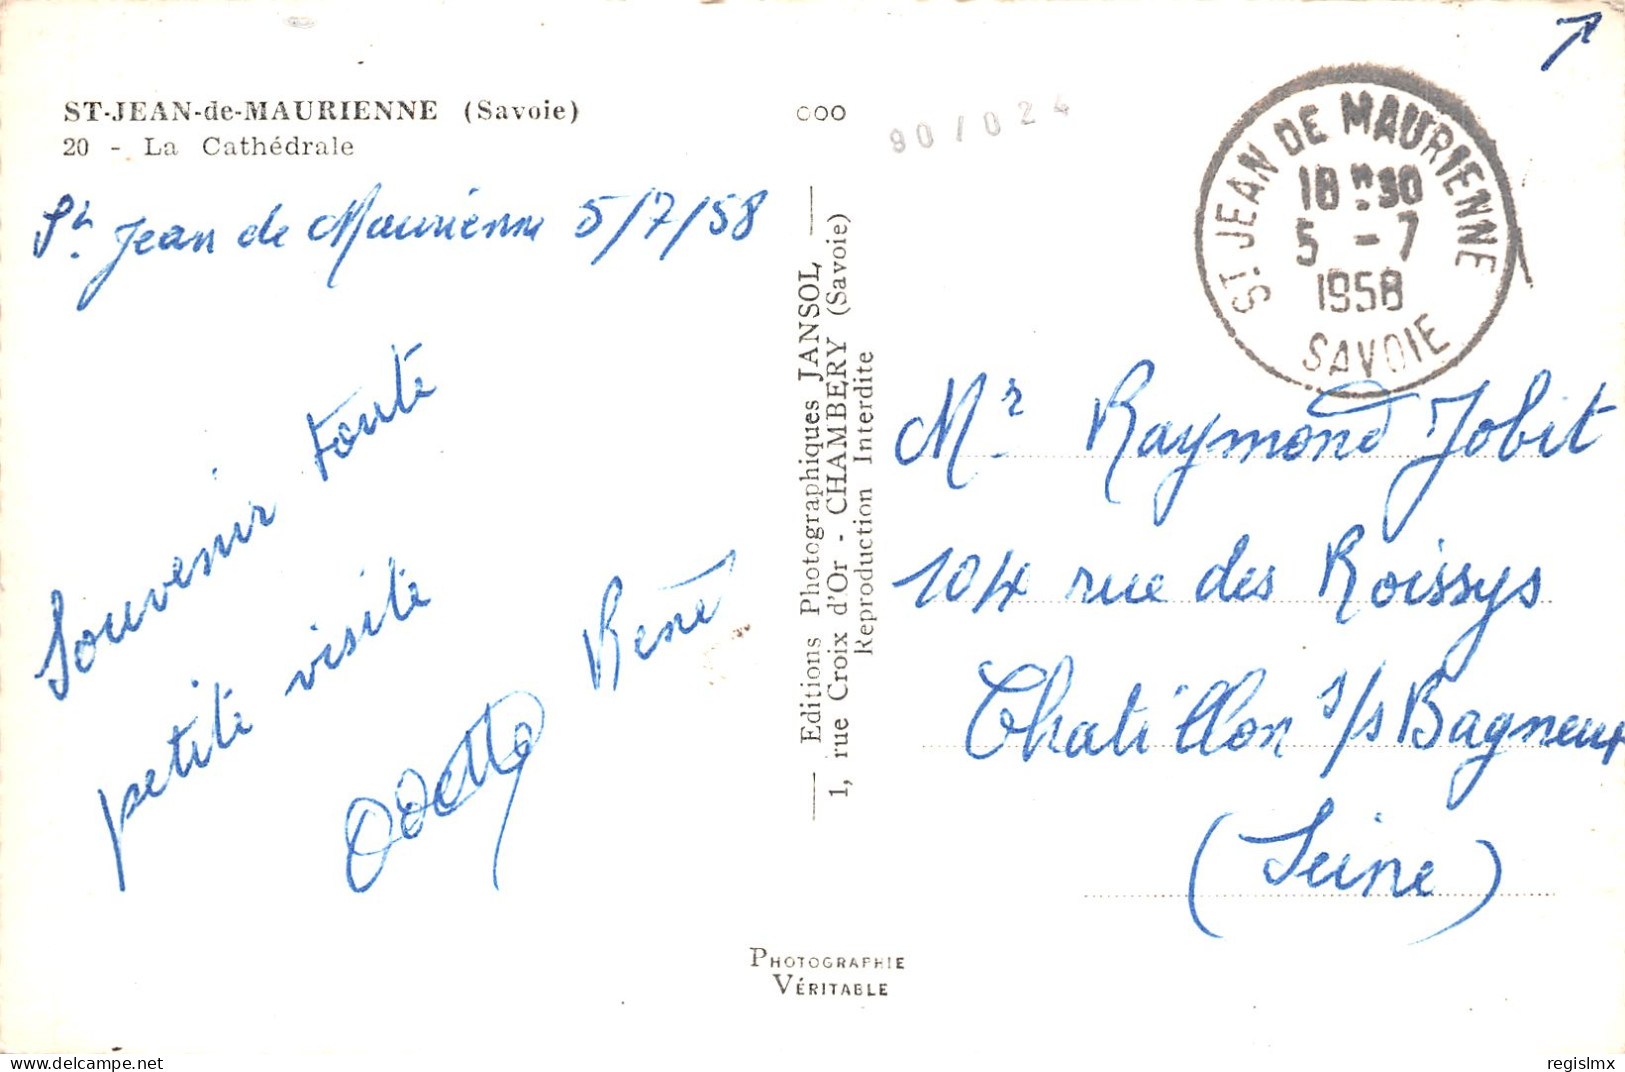 ST-JEAN-de-MAURIENNE (Savoie)
20 - La Cathédrale
St. Jean de Maurienne 5/7/58
Souvenir toute
petite visite
René
Odette
COO
90/024
Editions Photographiques JANSOL
1, rue Croix d'Or - CHAMBERY (Savoie)
Reproduction Interdite
PHOTOGRAPHIE
VÉRITABLE
ST. JEAN DE MAURIENNE
5 - 7
1958
SAVOIE
Mr Raymond Jobit
104 rue des Roissys
Chatillon s/s Bagneux
(Seine)
delcampe.net
regislmx